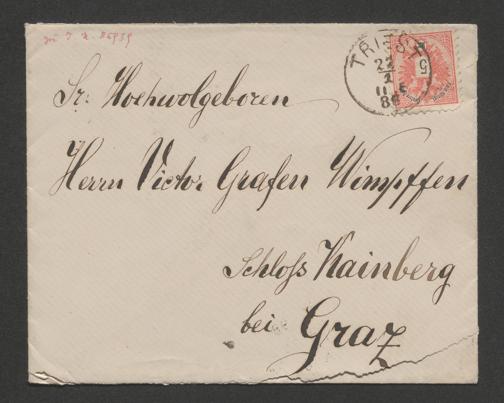 TRIEST
22
11 E
5
Sr. Hochwolgeboren
Herrn Victor Grafen Wimpffen
Schloß Kainberg
bei Graz